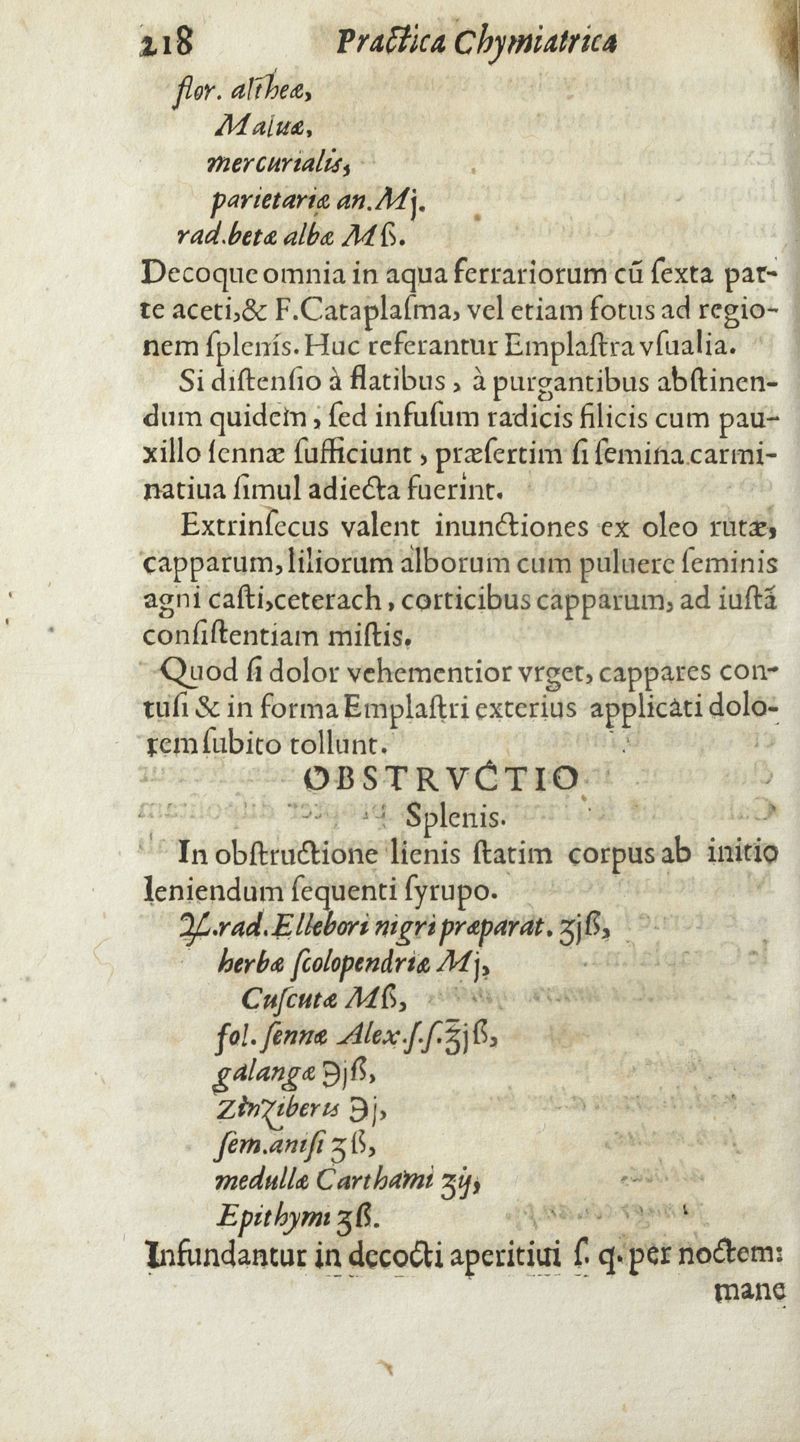 218 Practica Chymiatrica
flor. altheæ,
Maluæ,
mercurialis,
parietariæ an. Mj.
rad. betæ albæ Mß.
Decoque omnia in aqua ferrariorum cũ ſexta par-
te aceti, & F. Cataplaſma, vel etiam fotus ad regio-
nem ſplenis. Huc referantur Emplaſtra vſualia.
Si diſtenſio à flatibus, à purgantibus abſtinen-
dum quidem, ſed infuſum radicis filicis cum pau-
xillo ſennæ ſufficiunt, præſertim ſi ſemina carmi-
natiua ſimul adiecta fuerint.
Extrinſecus valent inunctiones ex oleo rutæ,
capparum, liliorum alborum cum puluere ſeminis
agni caſti, ceterach, corticibus capparum, ad iuſtã
conſiſtentiam miſtis.
Quod ſi dolor vehementior vrget, cappares con-
tuſi & in forma Emplaſtri exterius applicati dolo-
rem ſubito tollunt.
OBSTRVCTIO
Splenis.
In obſtructione lienis ſtatim corpus ab initio
leniendum ſequenti ſyrupo.
♃. rad. Ellebori nigri præparat. ʒjß,
herbæ ſcolopendriæ Mj,
Cuſcutæ Mß,
fol. ſennæ Alex. ſ. ſ. ℥jß,
galangæ ℈jß,
Zinziberis ℈j,
ſem. aniſi ʒß,
medullæ Carthami ʒij,
Epithymi ʒß.
Infundantur in decocti aperitiui ſ. q. per noctem:
mane